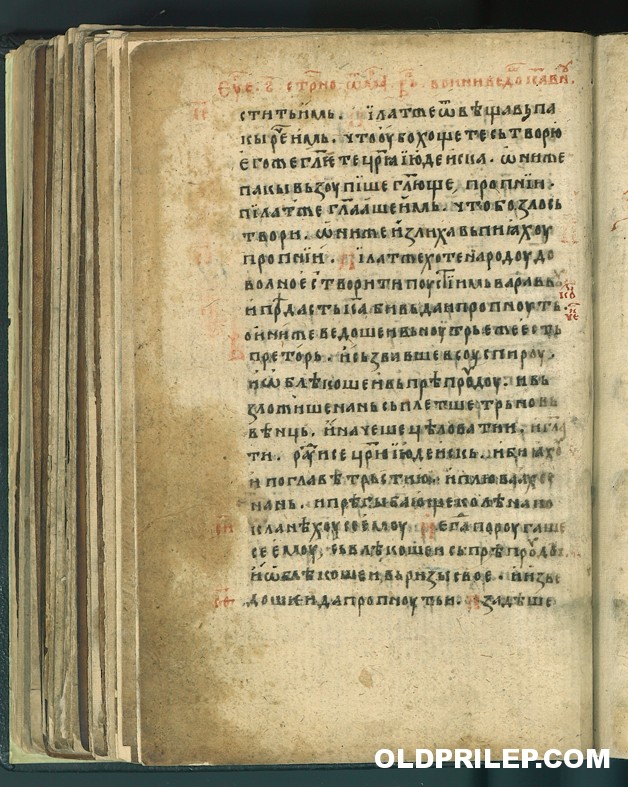 стить имь. Пилат же ѿвѣщавь па
кы рече имь. что оубо хощете сьтворю
его же гл҃ете цр҃ꙗ їюдеиска. ѡни же
пакы вьзоупїше гл҃юще, пропни и.
пїлат же гл҃аше имь. что бо зло сь
твори. ѡни же излиха вьпиꙗхоу
пропни и. Пїлат же хоте народоу до
волно створити поусти имь варавв
и прѣдасть іса бивь да и пропноуть.
ѡни же ведоше и вьноутрь еже есть
преторь. и сьзвавше всоу спироу.
и ѡблѣкоше и вь прѣпроудоу. и вь
зложише на нь сьплетше трьновь
вѣнць. и начеше цѣловати и. и гл҃а
ти. раꙋисе цр҃ꙋ їюдеискь. и биꙗхоу
и по главѣ трьстию. и плюваахоу
на нь. и прѣгыбающе колѣна по
кланѣхоу се емоу. егда пороугаше
се емоу, сьвлѣкоше и сь прѣпроудоу.
и ѡблѣкоше и вь ризы свое. и изве
доше и да пропноуть и. и задѣше
OLDPRILEP.COM